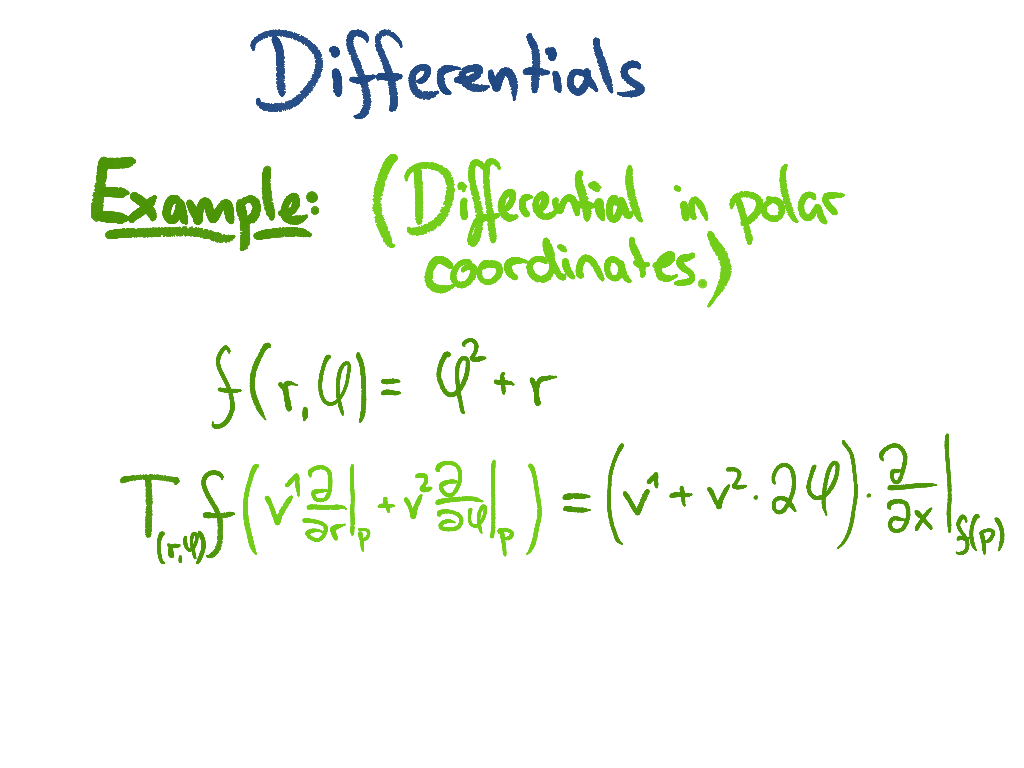 Differentials
Example: (Differential in polar
coordinates.)
f(r, φ) = φ² + r
T₍r,φ₎ f (v¹ ∂/∂r|ₚ + v² ∂/∂φ|ₚ) = (v¹ + v² · 2φ) · ∂/∂x|f(p)